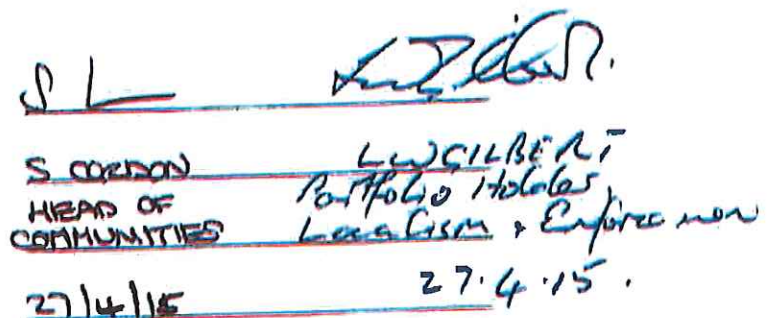 S L
S CORDON
HEAD OF
COMMUNITIES
27/4/15
LW GILBERT
Portfolio Holder,
Localism + Enforcement
27.4.15.